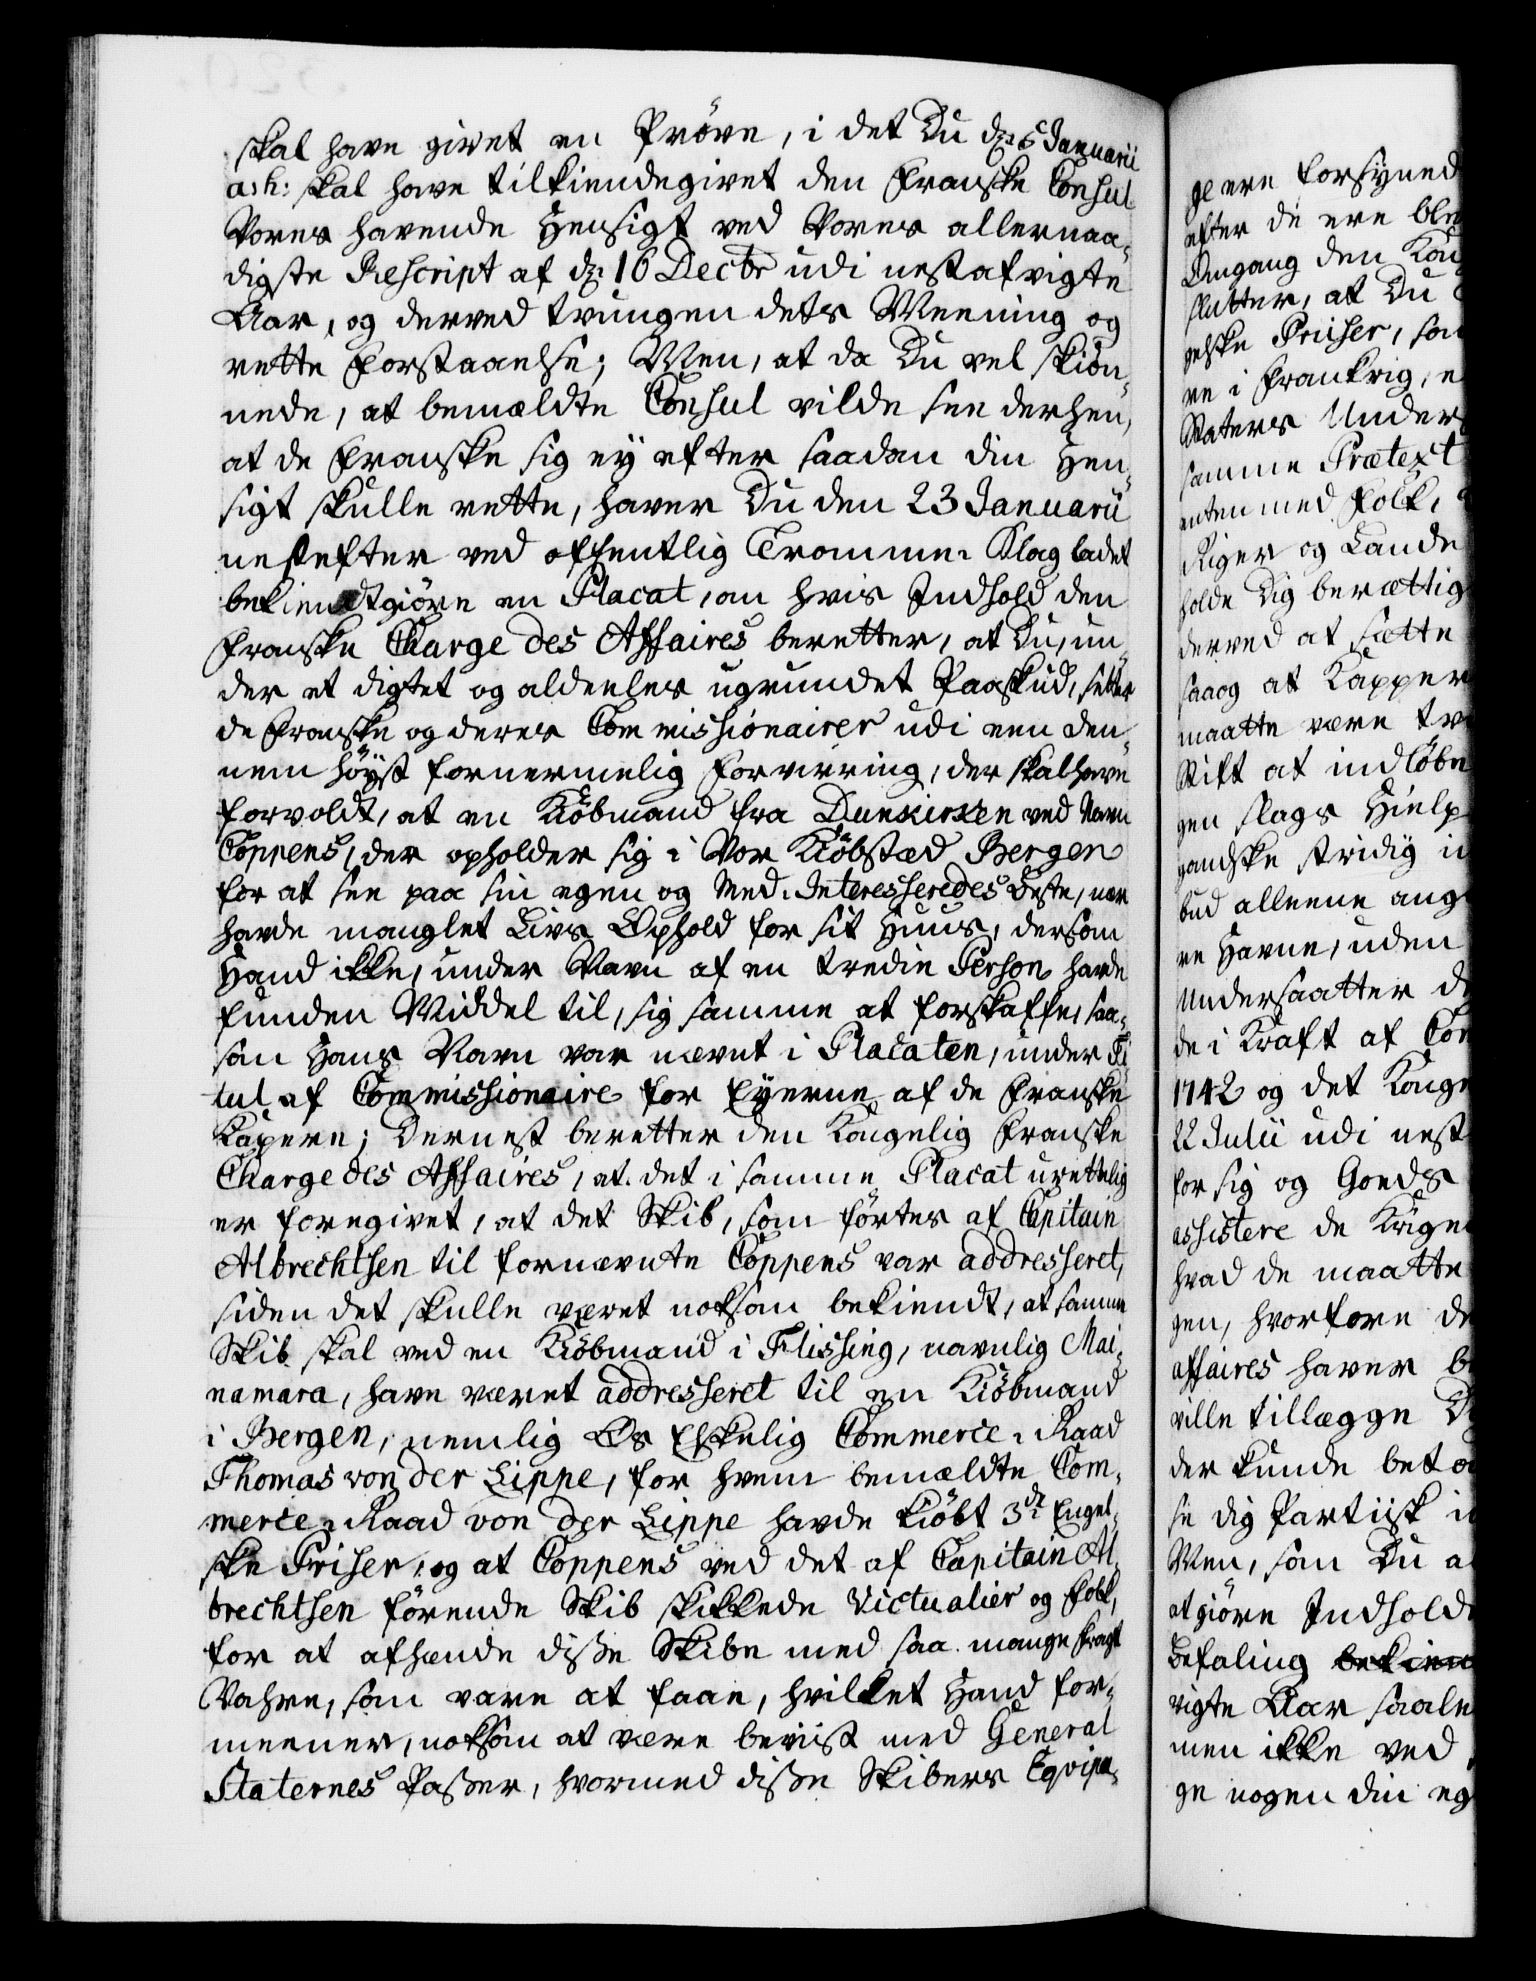 skal have givet en Prøve, i det Du dn 5 Januarii
a: h: skal have tilkiendegivet den Franske Consul
Vores havende Hensigt ved Vores allernaa-
digste Rescript af dn 16 Decbr udi nestafvigte
Aar, og derved tvungen dets Meening og
rette Forstaaelse; Men, at da Du vel skiøn-
nede, at bemældte Consul vilde see derhen,
at de Franske sig ey efter saadan din Hen-
sigt skulle rette, haver Du den 23 Januarii
nestefter ved offentlig Tromme-Slag ladet
bekiendtgiøre en Placat, om hvis Indhold den
Franske Charge des Affaires beretter, at Du, un-
der et digtet og aldeeles ugrundet Paaskud, setter
de Franske og deres Commissionairer udi een den-
nem høyst fornermelig Forvirring, der skal have
forvoldt, at en Kiøbmand fra Dunkirken ved Navn
Coppens, der opholder sig i Vor Kiøbstæd Bergen
for at see paa sin egen og Med-Interesseredes Beste, nær
havde manglet Livs Ophold for sit Huus, dersom
Hand ikke, under Navn af en tredie Person havde
funden Middel til, sig samme at forskaffe, saa-
som Hans Navn var nævnt i Placaten, under Ti-
tul af Commissionaire for Eyerne af de Franske
Kapere; Dernest beretter den Kongelig Franske
Charge des Affaires, at det i samme Placat urettelig
er foregivet, at det Skib, som førtes af Capitain
Albrechtsen til fornævnte Coppens var addresseret,
siden det skulle været noksom bekiendt, at samme
Skib skal ved en Kiøbmand i Flissing, navnlig Mai-
namara, have været addresseret til en Kiøbmand
i Bergen, nemlig Os Elskelig Commerce-Raad
Thomas von der Lippe, for hvem bemældte Com-
merce-Raad von der Lippe havde kiøbt 3de Engel-
ske Priser, og at Coppens ved det af Capitain Al-
brechtsen førende Skib skikkede Victualier og Folk,
for at afhænde disse Skibe med saa mange Fragt
Vahre, som vare at faae, hvilket Hand for-
meener, noksom at være beviist med General
Staternes Passer, hvormed disse Skibers Eqvipa-
ge ere forsyned
efter de ere ble
Omgang den Kon
slutter, at Du
gelske Priser, som
re i Frankrig, e
Staters Unders
samme Prætext
enten med Folk,
Riger og Lande
holde Dig berættig
derved at sætte
saa og at Kapper
maatte være tv
Stift at indløbe
gen slags Hielp
gandske stridig i
bud alleene ang
re Havne, uden
Undersaatter d
de i Kraft af Con
1742 og det Konge
22 Julii udi nest
for sig og Gods
assistere de Krige
hvad de maatte
gen, hvorfore de
affaires haver b
ville tillægge D
der kunde beta
se dig Partiisk i
Men, som Du a
at giøre Indholde
Befaling bekien
vigte Aar saale
men ikke ved
ge nogen din eg